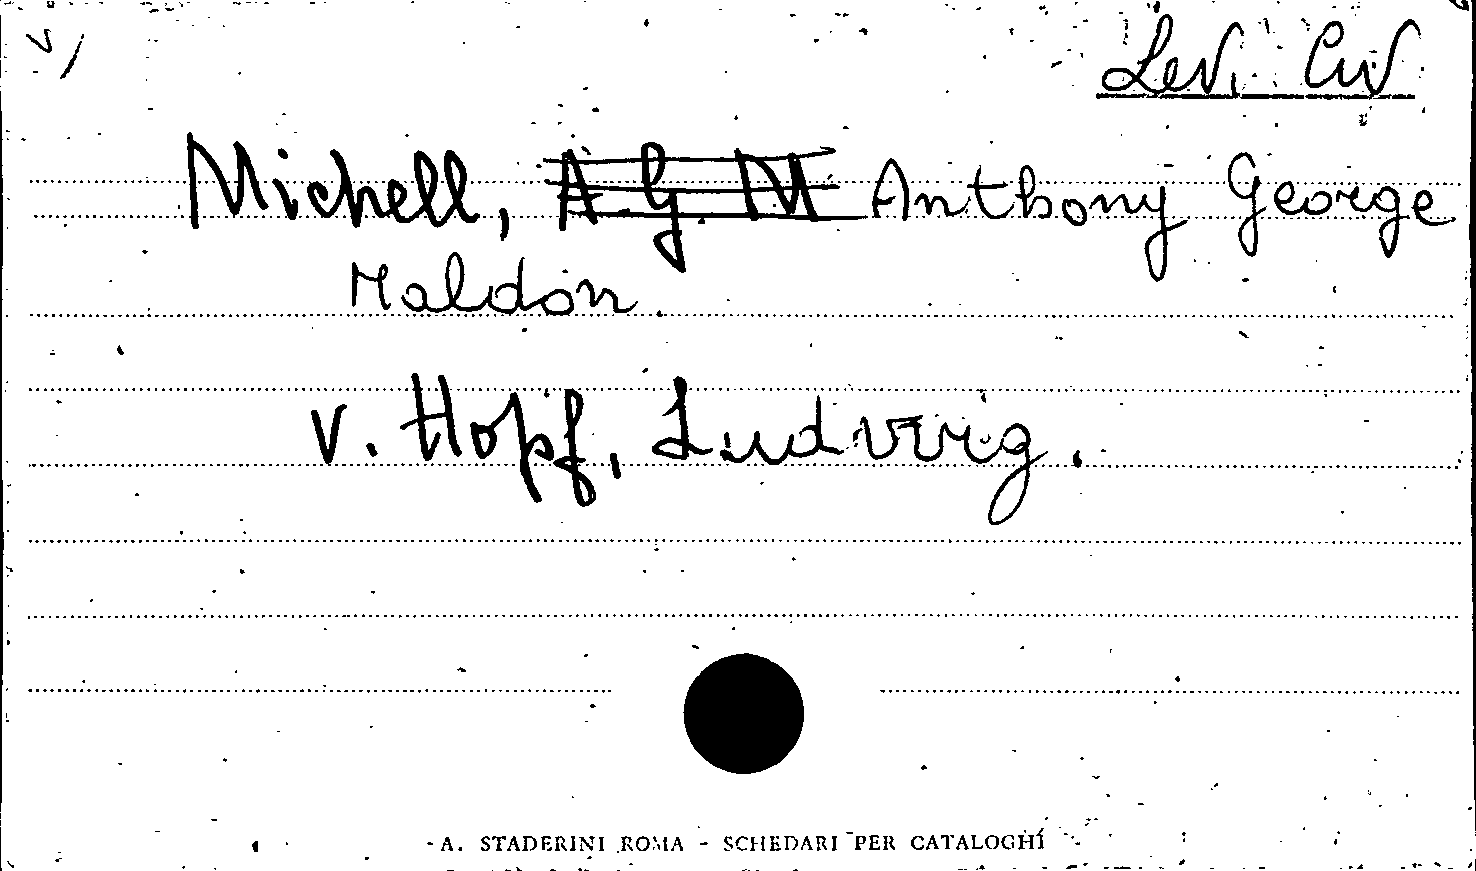 Lev. Civ
Michell, A. G. M Anthony George
Maldon
v. Hopf, Ludwig.
A. STADERINI ROMA - SCHEDARI PER CATALOGHI